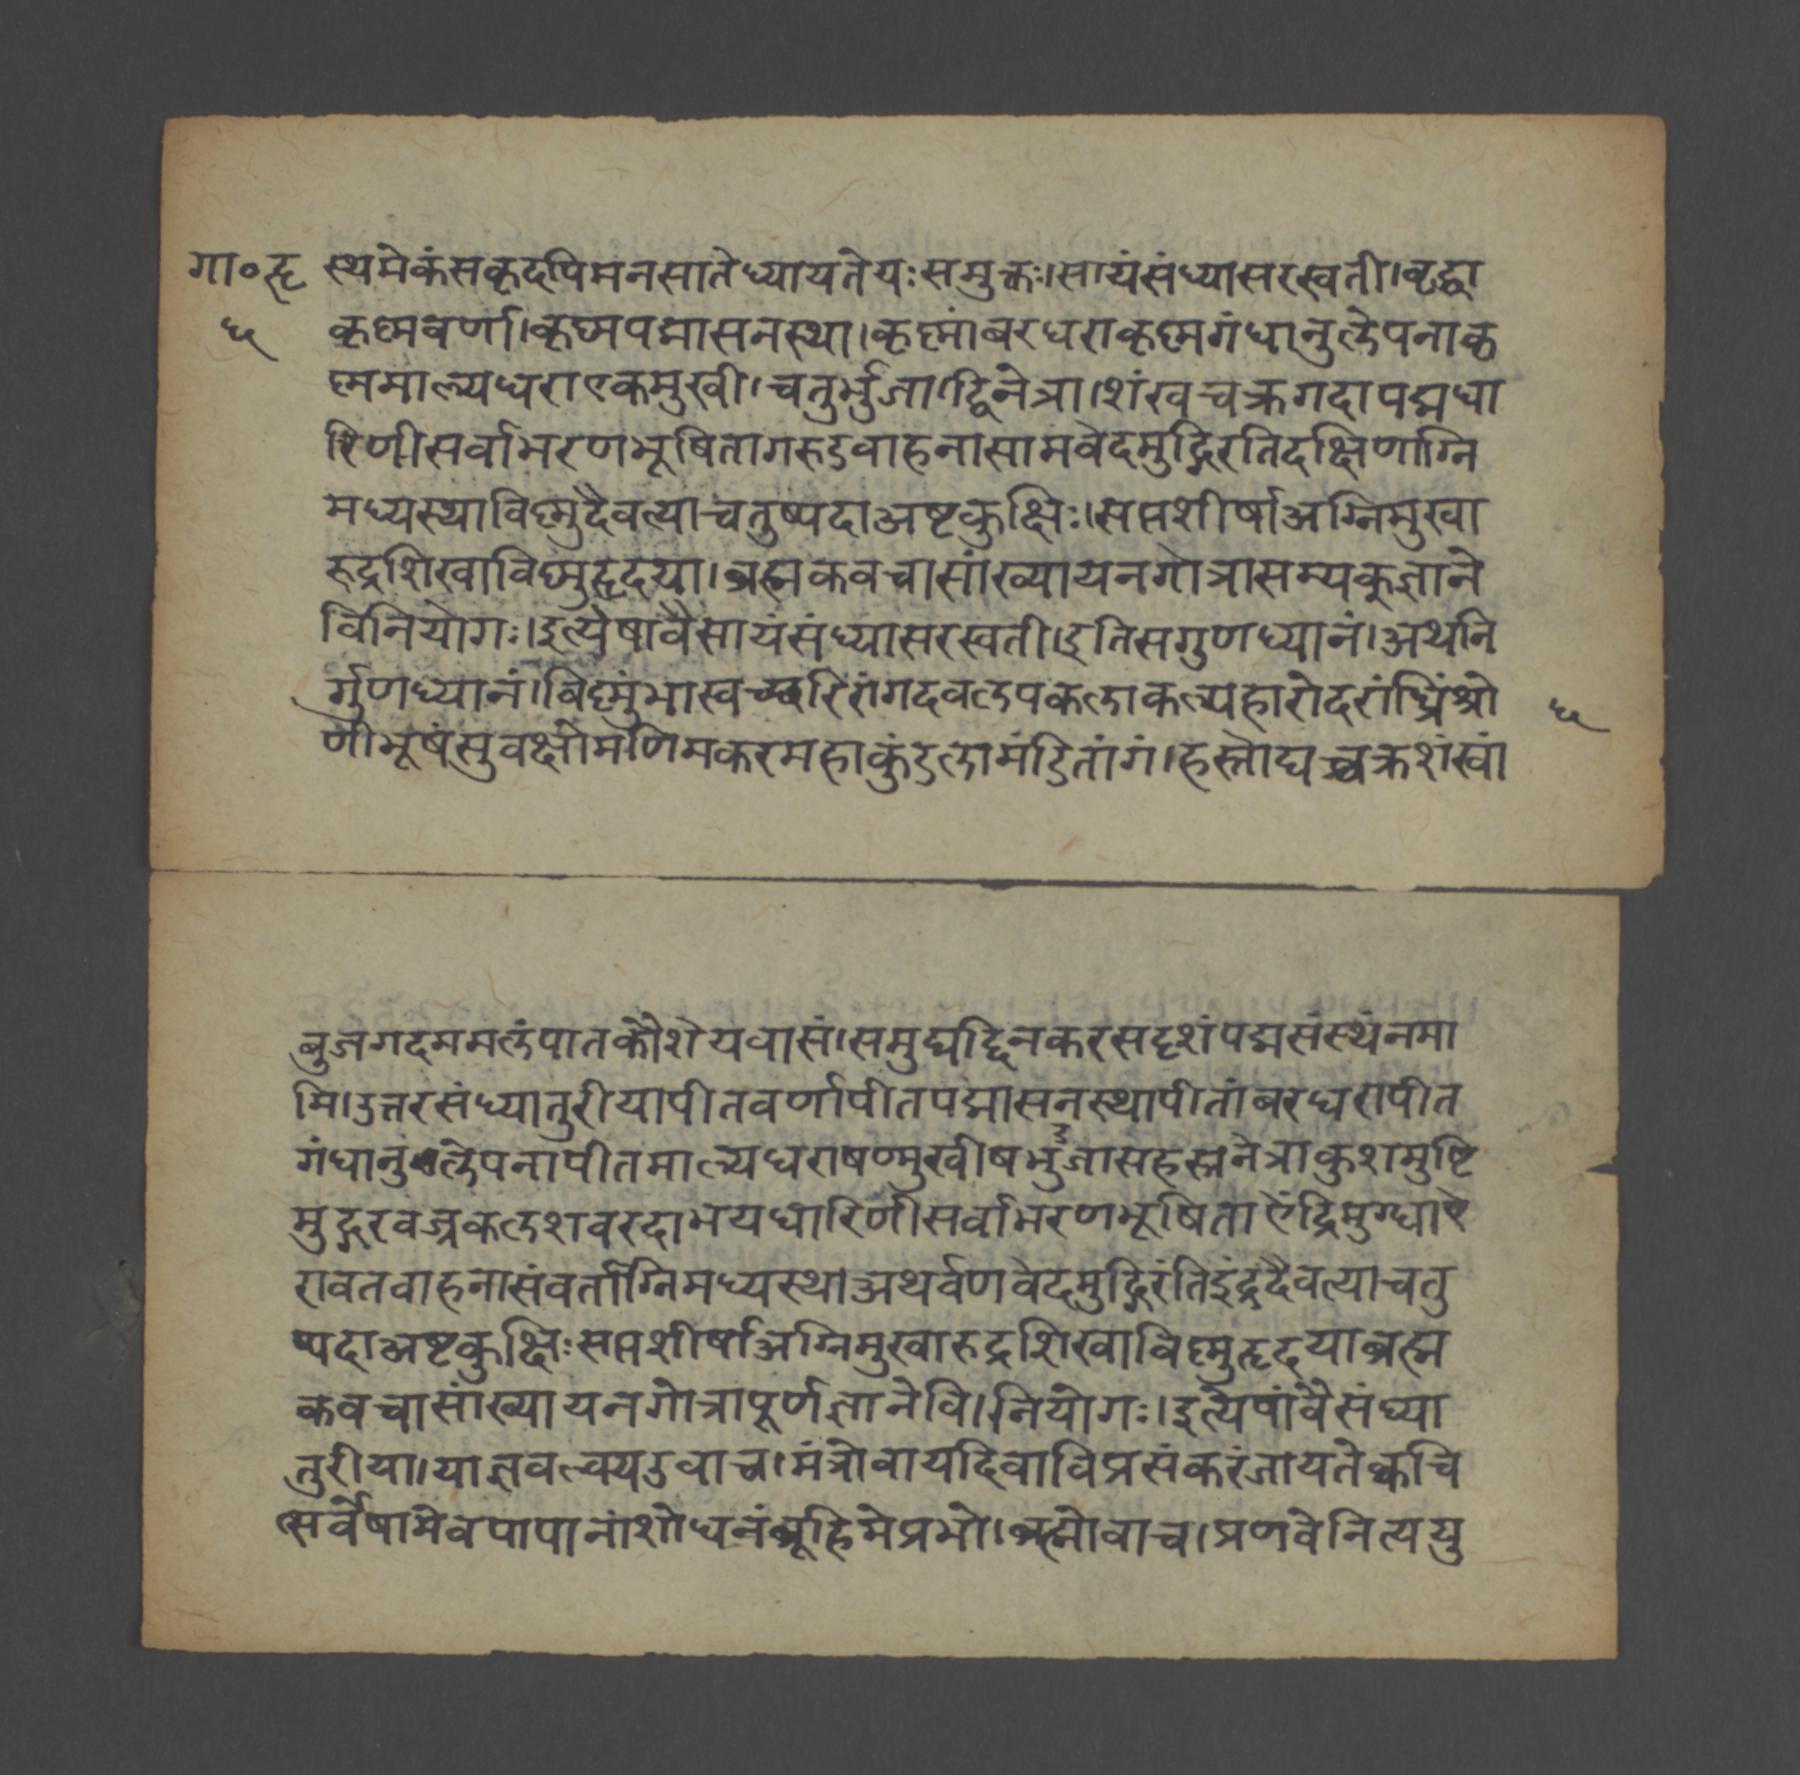 गा०हृ
५
स्थमेकंसकृदपिमनसातेध्यायतेयःसमुक्तः।सायंसंध्यासरस्वती।वृद्धा
कृष्णवर्णा।कृष्णपद्मासनस्था।कृष्णांबरधराकृष्णगंधानुलेपनाकृ
ष्णमाल्यधराएकमुखी।चतुर्भुजा।द्विनेत्रा।शंखचक्रगदापद्मधा
रिणीसर्वाभरणभूषितागरुडवाहनासामवेदमुद्गिरतिदक्षिणाग्नि
मध्यस्थाविष्णुदैवत्याचतुष्पदाअष्टकुक्षिः।सप्तशीर्षाअग्निमुखा
रुद्रशिखाविष्णुहृदया।ब्रह्मकवचासांख्यायनगोत्रासम्यक्ज्ञाने
विनियोगः।इत्येषावैसायंसंध्यासरस्वती।इतिसगुणध्यानं।अथनि
र्गुणध्यानं।विष्णुंभास्वच्छरिरांगदवलपकलाकल्पहारोदरांघ्रिंश्रो
णीभूषंसुवक्षोमणिमकरमहाकुंडलामंडितांगं।हस्तोद्यच्चक्रशंखां
५
बुजगदममलंपातकौशेयवासं।समुद्यद्दिनकरसदृशंपद्मसंस्थंनमा
मि।उत्तरसंध्यातुरीयापीतवर्णापीतपद्मासनस्थापीतांबरधरापीत
गंधानुलेपनापीतमाल्यधराषण्मुखीषड्भुजासहस्रनेत्राकुशमुष्टि
मुद्गरवज्रकलशवरदाभयधारिणीसर्वाभरणभूषिताऐंद्रिमुग्धाऐ
रावतवाहनासंवर्ताग्निमध्यस्थाअथर्वणवेदमुद्गिरंतिइंद्रदैवत्याचतु
ष्पदाअष्टकुक्षिःसप्तशीर्षाअग्निमुखारुद्रशिखाविष्णुहृदयाब्रह्म
कवचासांख्यायनगोत्रापूर्णज्ञानेवि।नियोगः।इत्येषांवैसंध्या
तुरीया।याज्ञवल्क्यउवाच।मंत्रोवायदिवाविप्रसंकरंजायतेक्वचि
त्सर्वेषामेवपापानांशोधनंब्रूहिमेप्रभो।ब्रह्मोवाच।प्रणवेनित्ययु